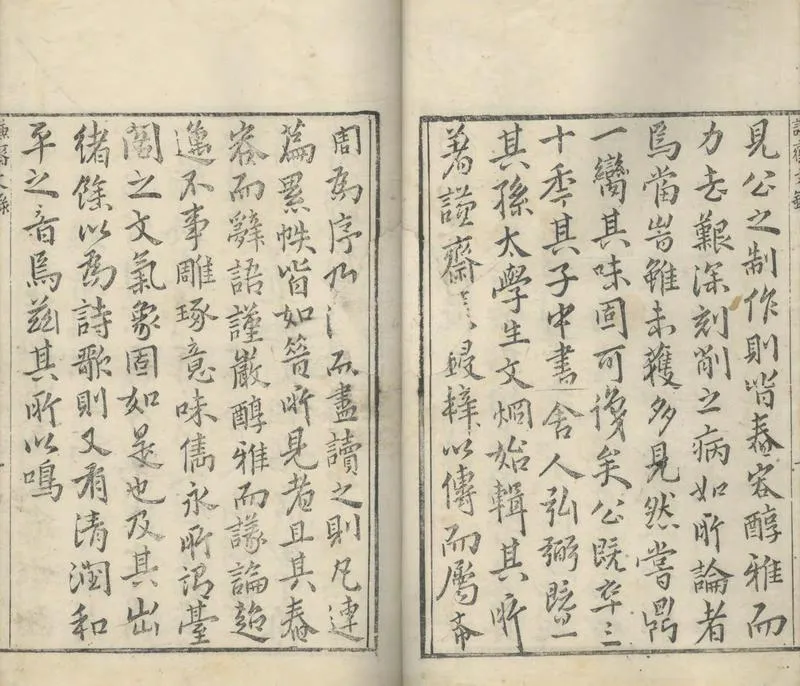 見公之制作則皆舂容醇雅而
力去艱深刻削之病如所論者
焉當旹雖未獲多見然嘗鼎
一臠其味固可矣公既卒三
十秊其子中書舍人弘弼暨
其孫太學生文烱始輯其所
著謙齋鋟梓以傳而屬
周爲序乃而盡讀之則凡連
篇累帙皆如昔所見者且其舂
容而辭語謹嚴醇雅而議論超
邁不事雕琢意味雋永所謂臺
閣之文氣象固如是也及其出
緒餘以爲詩歌則又有清潤和
平之音焉茲其所以鳴
謙齋文錄